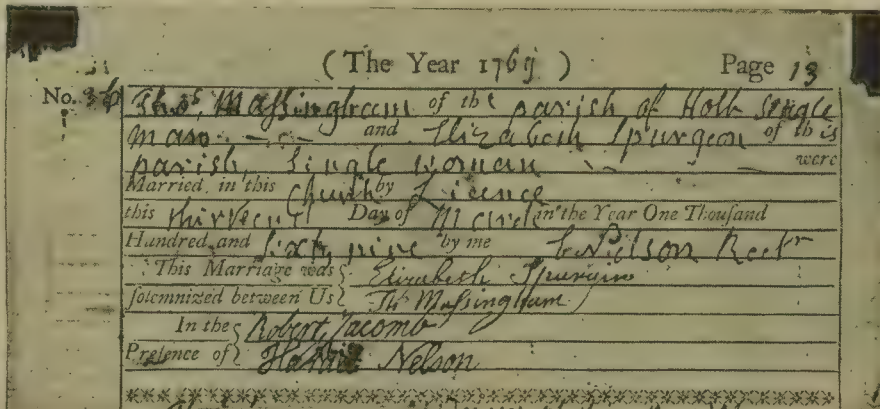 ( The Year 1769 ) Page 13
No. 36 Thos. Massingham of the parish of Holt Single
man and Elizabeth Spurgeon of this
parish, Single woman were
Married in this Church by Licence
this thirteenth Day of March in the Year One Thousand
Hundred and sixty nine by me Nelson Rectr
This Marriage was Elizabeth Spurgeon
solemnized between Us Th Massingham
In the Robert Jacomb
Presence of Nelson